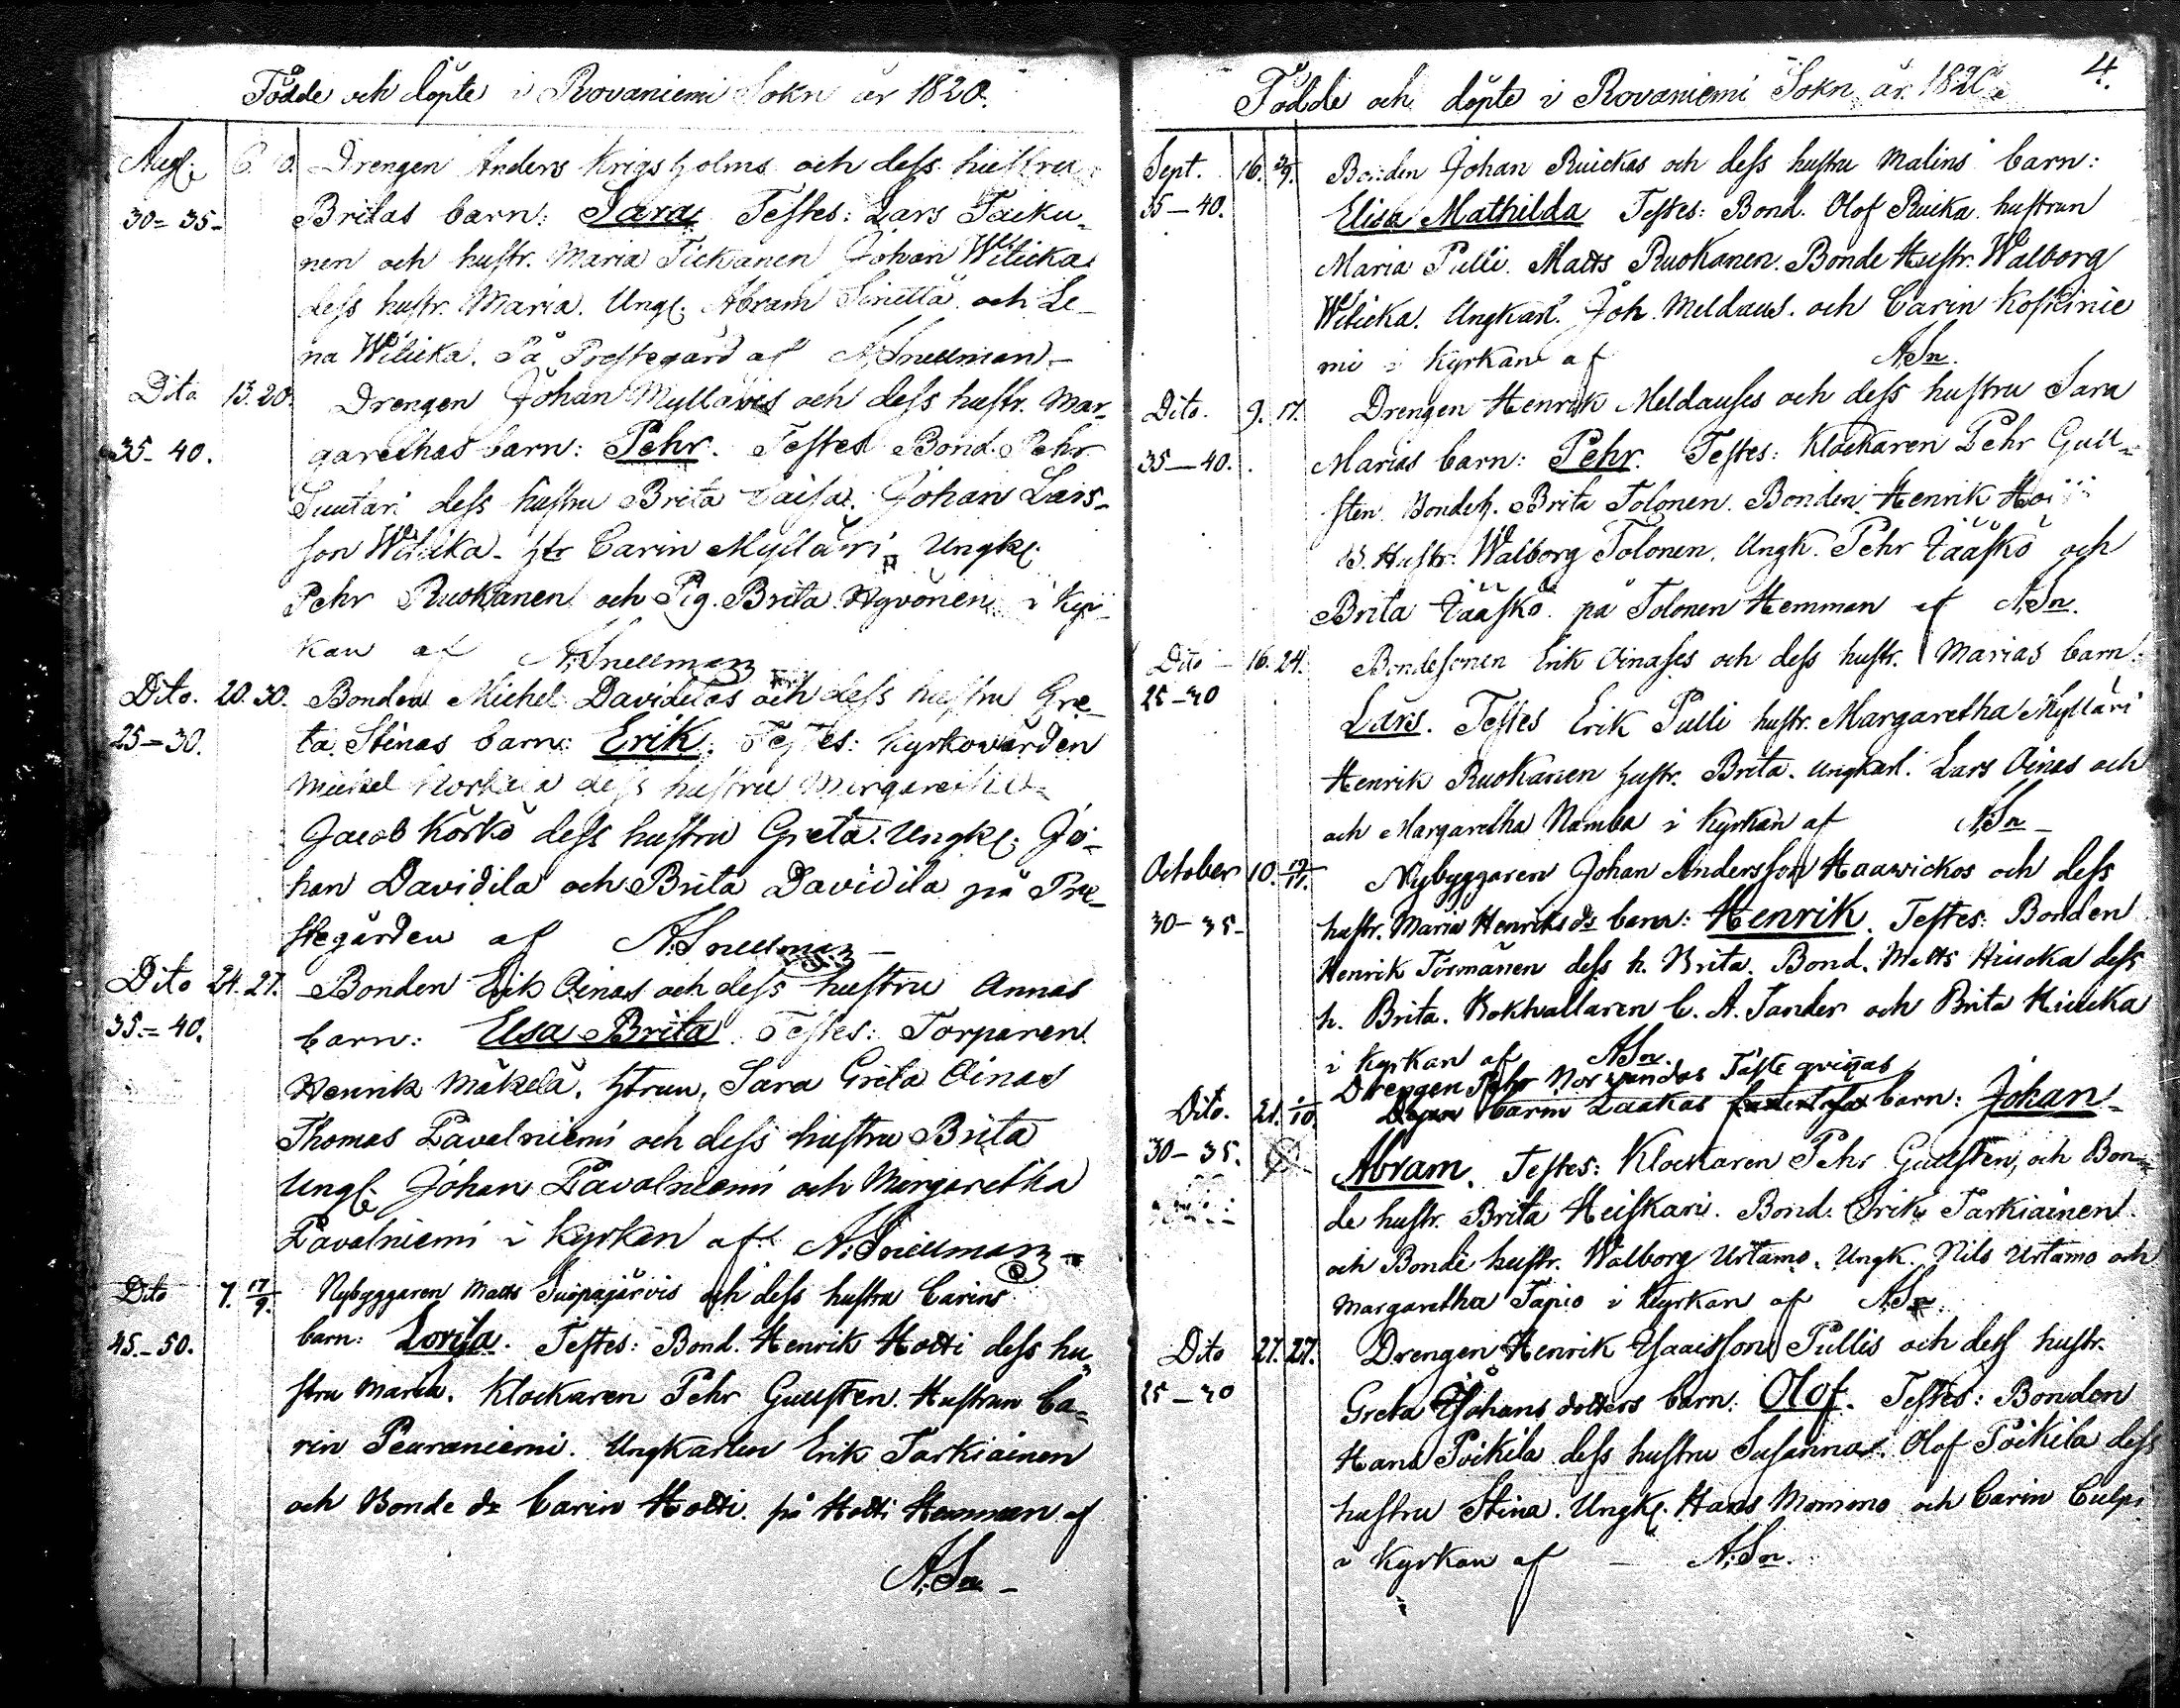 Födde och döpte i Rovaniemi Sokn år 1820.
Aug. 6. Drengen Anders Krigsholms och dess hustru
30 = 35 - Britas barn: Sara Testes: Lars Taiku-
nen och hustr. Maria Tickanen Johan Wilicka
dess hustr. Maria. Ungk. Abram Sinetta och Le-
na Wilicka. På Prestegård af A. Snellman -
Dito 13. 20. Drengen Johan Myllaris och dess hustr. Mar-
35 - 40. garethas barn: Pehr. Testes Bond. Pehr
Suutari dess hustru Brita Caisa. Johan Lars-
son Wilicka. htr Carin Mylläri, Ungk.
Pehr Ruokanen och Pig. Brita Hyvönen i Kyr-
kan af A. Snellman
Dito. 20. 30. Bonden Michel Davidilas och dess hustru Gre-
25 - 30. ta Stinas barn: Erik. Testes: Kyrkovärden
Michel Korkala dess hustru Margaretha
Jacob Körkö dess hustru Greta. Ungk. Jo-
han Davidila och Brita Davidila på Pre-
stegården af A. Snellman -
Dito 24. 27. Bonden Erik Ainas och dess hustru Annas
35 = 40. barn: Elsa Brita. Testes: Torparen
Henrik Mäkelä. htrun, Sara Greta Ainas
Thomas Pavalniemi och dess hustru Brita
Ungk. Johan Pavalniemi och Margaretha
Pavalniemi i Kyrkan af A. Snellman -
Dito 7. 17/9. Nybyggaren Matts Suopajärvis och dess hustru Carins
45 - 50. barn: Lovisa. Testes: Bond. Henrik Hotti dess hu-
stru Maria. Klockaren Pehr Gullsten. Hustrun Ca-
rin Peuraniemi. Ungkarlen Erik Tarkiainen
och Bonde dr Carin Hotti. på Hotti Hemman af
A. Sn -
4.
Födde och döpte i Rovaniemi Sokn år 1820
Sept. 16. Bonden Johan Ruickas och dess hustru Malins barn:
35 - 40. Elisa Mathilda Testes: Bond. Olof Ruika hustrun
Maria Pulli. Matts Ruokanen. Bonde Hustr. Walborg
Wilicka. Ungkarl. Joh. Meldaus. och Carin Koskinie
mi i Kyrkan af A. Sn.
Dito. 9. 17. Drengen Henrik Meldauses och dess hustru Sara
35 - 40. Marias barn: Pehr. Testes: Klockaren Pehr Gull-
sten. Bondeh. Brita Tolonen. Bonden Henrik
B. Hustr. Walborg Tolonen. Ungk. Pehr Jääskö och
Brita Jääskö på Tolonen Hemman af A. Sn.
Dito - 16. 24. Bondesonen Erik Ainases och dess hustr. Marias barn:
25 - 30 Lars. Testes Erik Pulli hustr. Margaretha Mylläri
Henrik Ruokanen hustr. Brita. Ungkarl. Lars Ainas och
och Margaretha Namba i Kyrkan af A. Sn -
October 10. Nybyggaren Johan Andersson Haawickos och dess
30 - 35 - hustr. Maria Henriks dr barn: Henrik. Testes: Bonden
Henrik Törmänen dess h. Brita. Bond. Matts Hiucka dess
h. Brita. Bokhållaren C. A. Sander och Brita Hiucka
i Kyrkan af A. Sn.
Drengen Pehr Norrgendas Fäste qvinnas
Dito. 21. Carin Laakas barn: Johan
30 - 35. Abram. Testes: Klockaren Pehr Gullsten, och Bon-
de hustr. Brita Heiskari. Bond. Erik Tarkiainen
och Bonde hustr. Walborg Urtamo. Ungk. Nils Urtamo och
Margaretha Tapio i Kyrkan af A. Sn.
Dito 27. 27. Drengen Henrik Isaaisson Pullis och dess hustr.
25 - 30 Greta Johans dotters barn: Olof. Testes: Bonden
Hans Poikila dess hustru Susanna. Olof Poikila dess
hustru Stina. Ungk. Hans Mommo och Carin Culpi
i Kyrkan af - A. Sn.